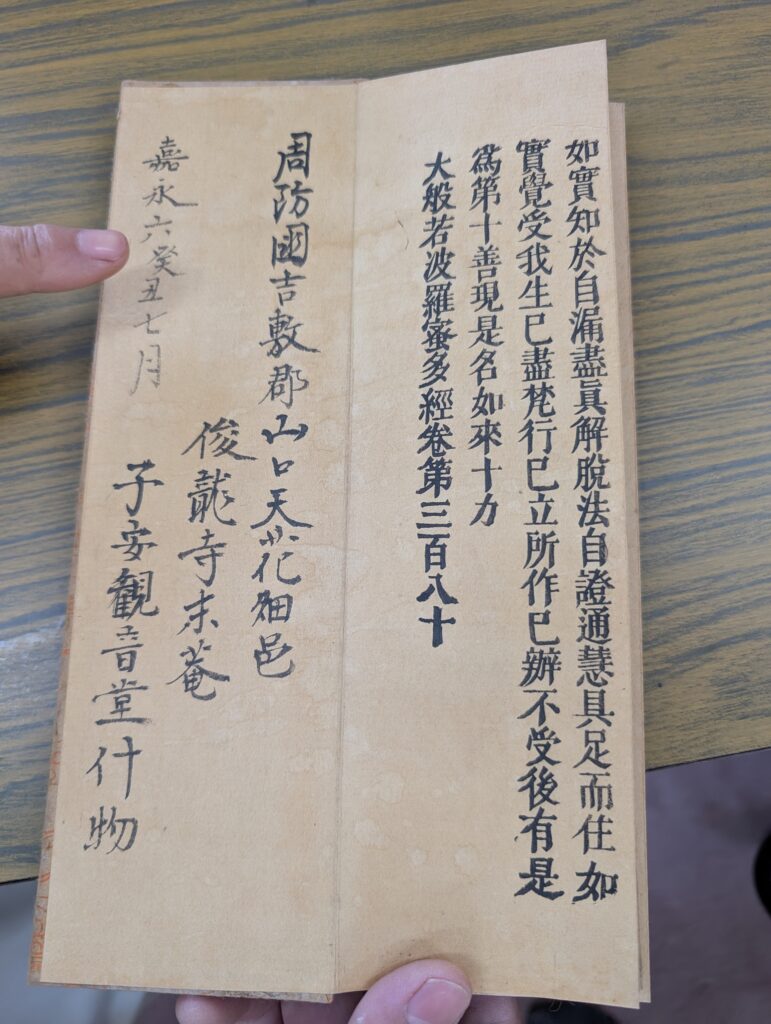 如實知於自漏盡眞解脫法自證通慧具足而住如
實覺受我生已盡梵行已立所作已辦不受後有是
爲第十善現是名如來十力
大般若波羅蜜多經卷第三百八十
周防國吉敷郡山口天花畑邑
俊龍寺末菴
子安観音堂什物
嘉永六癸丑七月